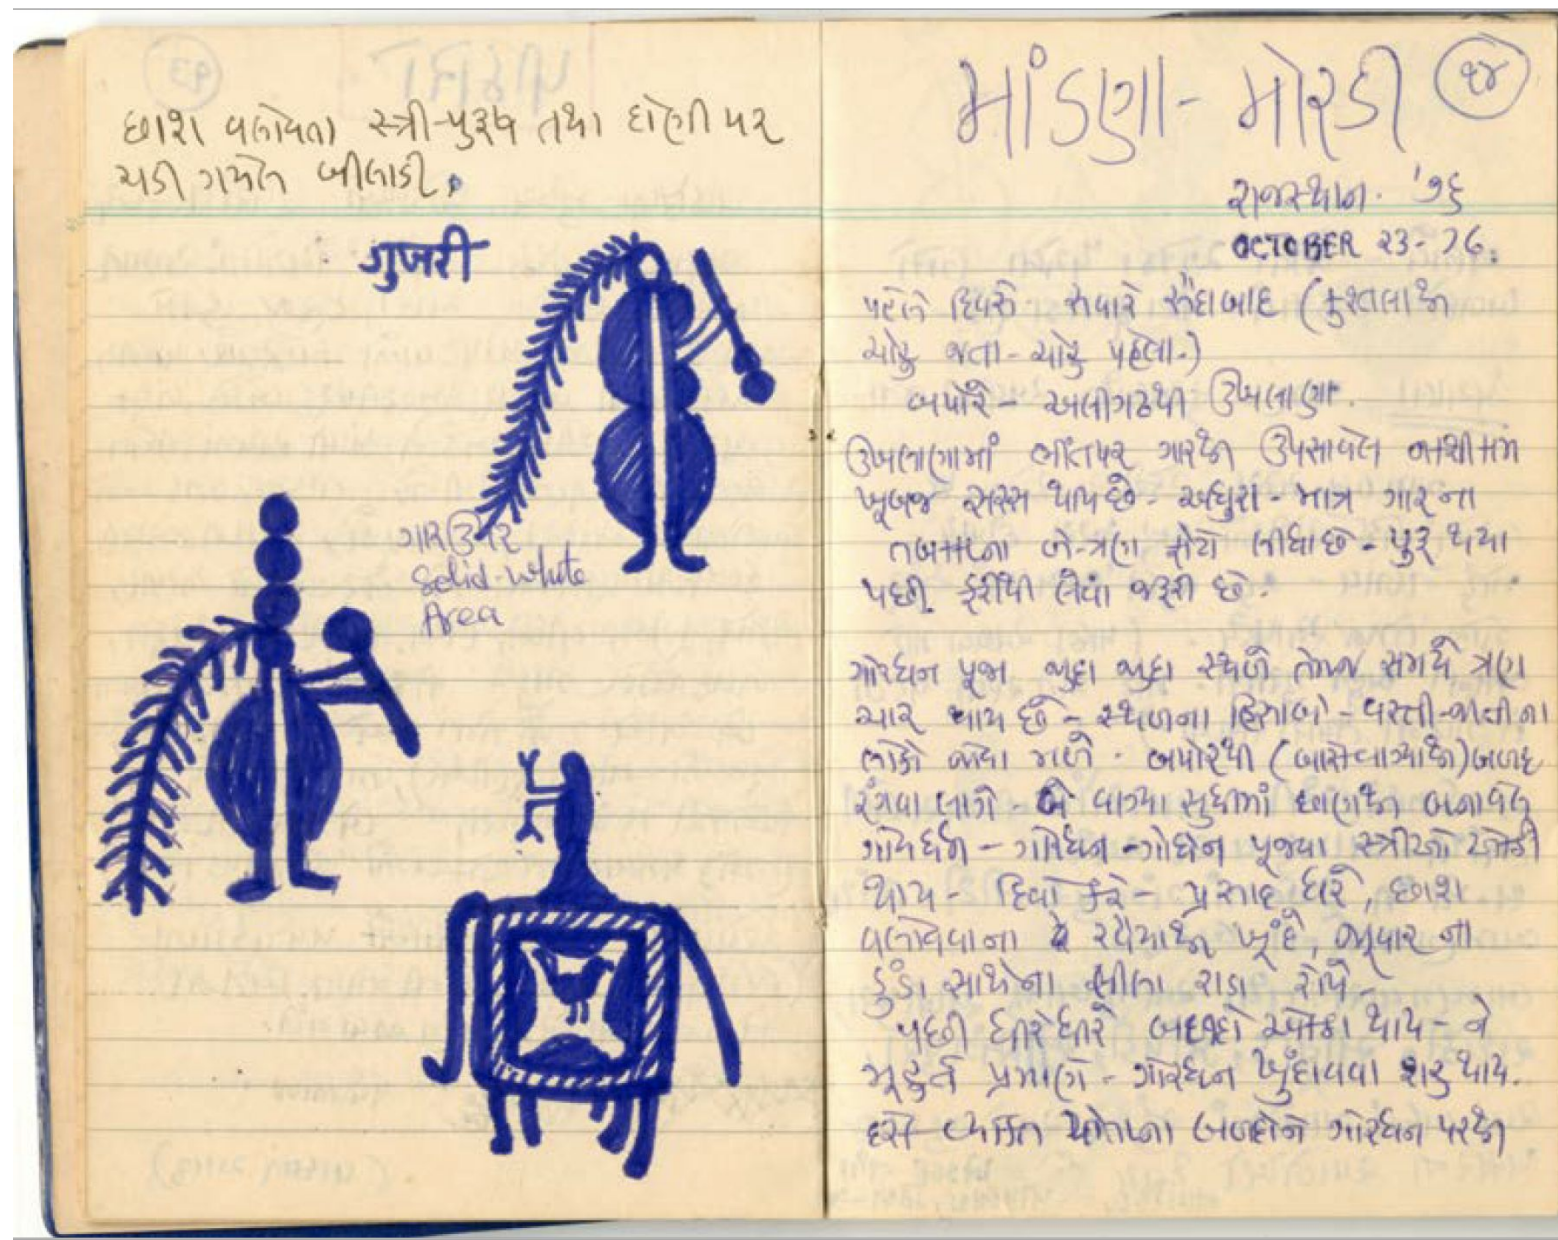 છાશ વલોવતા સ્ત્રી-પુરુષ તથા દોણી પર
ચડી ગયેલ બીલાડી.
गुजरी
ગારઉપર
Solid-white
Area
માંડણા - મોરડી
૧૪
રાજસ્થાન. '૭૬
OCTOBER 23-76.
પહેલે દિવસે સવારે
જતા - ચોરુ પહેલા.)
બપોરે - અલીગઢથી ઉખલાણા.
ઉખલાણામાં ભીંતપર ગારથી ઉપસાવેલ
ખૂબજ સરસ થાય છે - અધુરા - માત્ર ગારના
તબક્કાના બે-ત્રણ ફોટો લીધા છે - પુરૂ થયા
પછી ફરીથી લેવા જરૂરી છે.
ગોરધન પૂજા જુદા જુદા સ્થળે તેમજ સમયે ત્રણ
ચાર થાય છે - સ્થળના હિસાબે - વસ્તી-જાતીના
લોકો જોવા મળે - બપોરથી બળદ
રંગવા લાગે - બે વાગ્યા સુધીમાં છાણથી બનાવેલ
ગોવર્ધન - ગોરધન - ગોધન પૂજવા સ્ત્રીઓ ભેગી
થાય - દિવો કરે - પ્રસાદ ધરે, છાશ
વલોવવાના બે રવૈયાથી ખૂંદે, જુવાર ના
ડુંડા સાથેના લીલા રાડા રોપે -
પછી ધીરેધીરે બળદો ભેગા થાય - ને
મૂહુર્ત પ્રમાણે - ગોરધન ખુંદાવવા શરુ થાય.
દરેક વ્યક્તિ પોતાના બળદોને ગોરધન પરથી